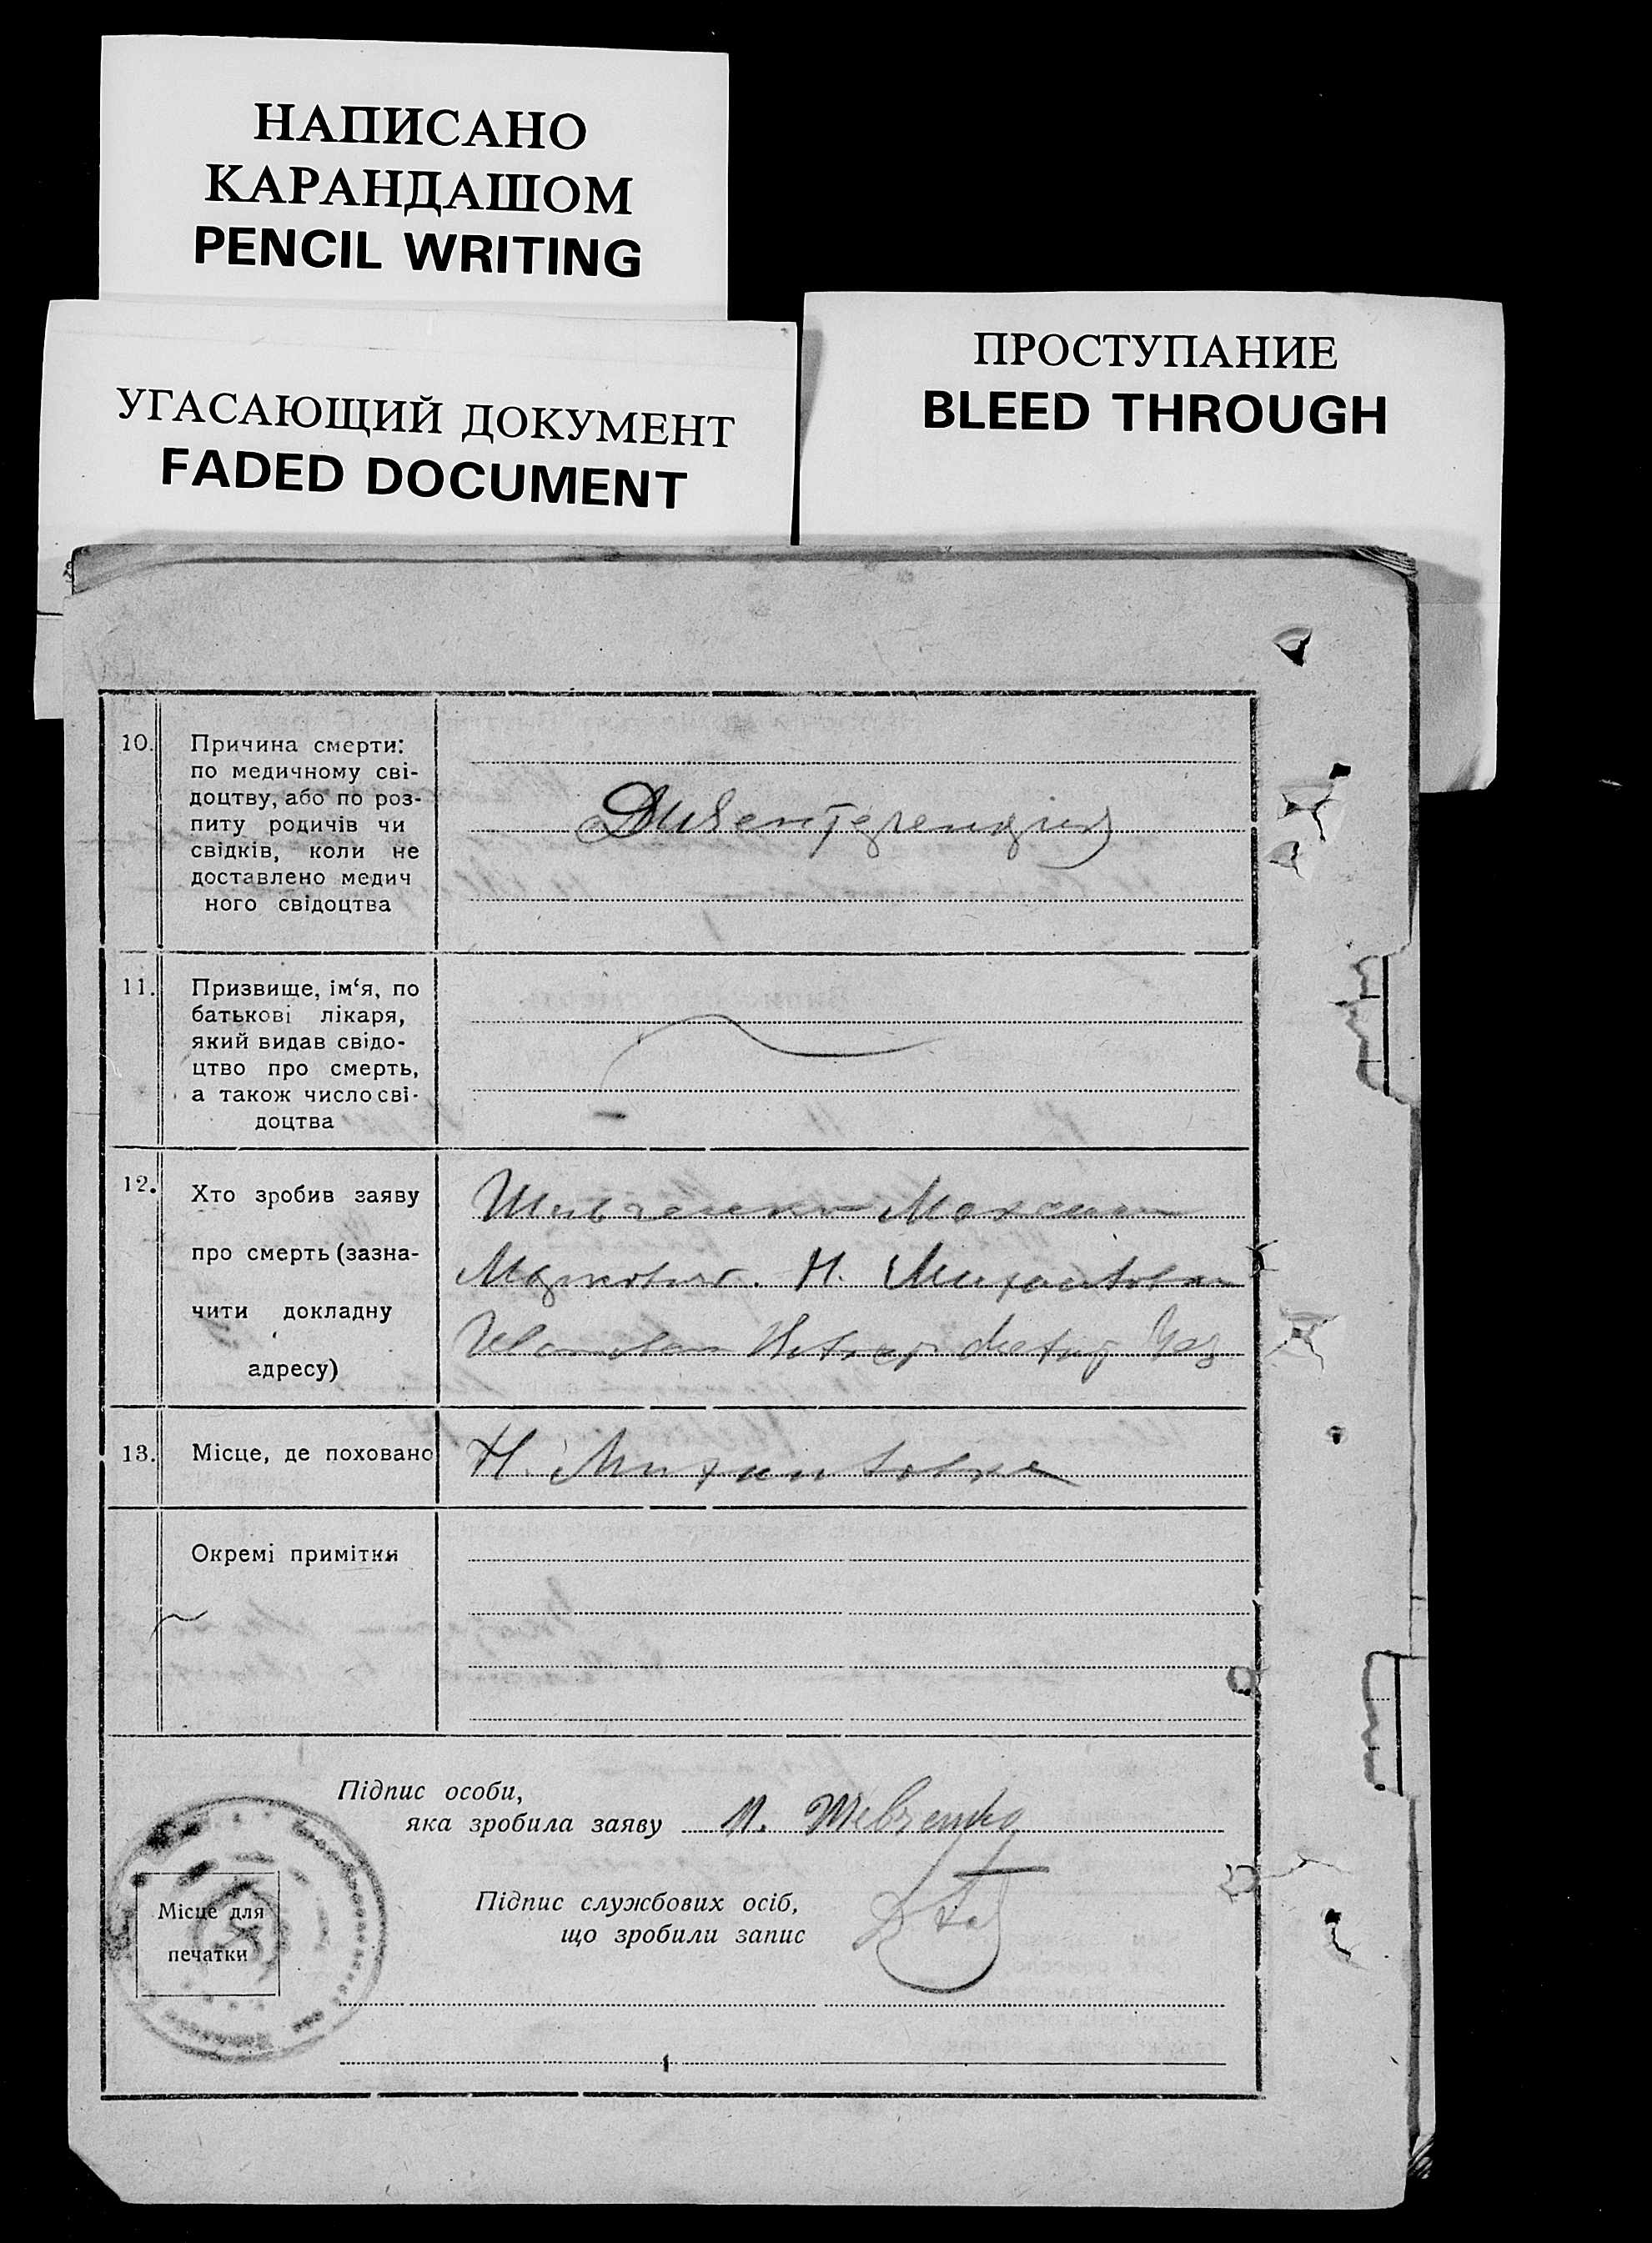 НАПИСАНО
КАРАНДАШОМ
PENCIL WRITING
УГАСАЮЩИЙ ДОКУМЕНТ
FADED DOCUMENT
ПРОСТУПАНИЕ
BLEED THROUGH
10. Причина смерти:
по медичному сві-
доцтву, або по роз-
питу родичів чи
свідків, коли не
доставлено медич
ного свідоцтва
11. Призвище, ім‘я, по
батькові лікаря,
який видав свідо-
цтво про смерть,
а також число сві-
доцтва
12. Хто зробив заяву
про смерть (зазна-
чити докладну
адресу)
Н.
13. Місце, де поховано
Н.
Окремі примітки
Підпис особи,
яка зробила заяву М. Шевченко
Підпис службових осіб,
що зробили запис
Місце для
печатки